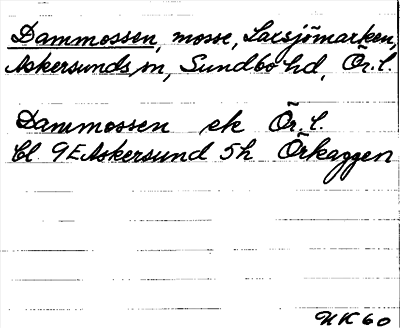 Dammossen, mosse, Laxsjömarken,
Askersunds sn, Sundbo hd, Ör. l.
Dammossen ek Ör. l.
Bl. 9E Askersund 5h Örkaggen
NK 60